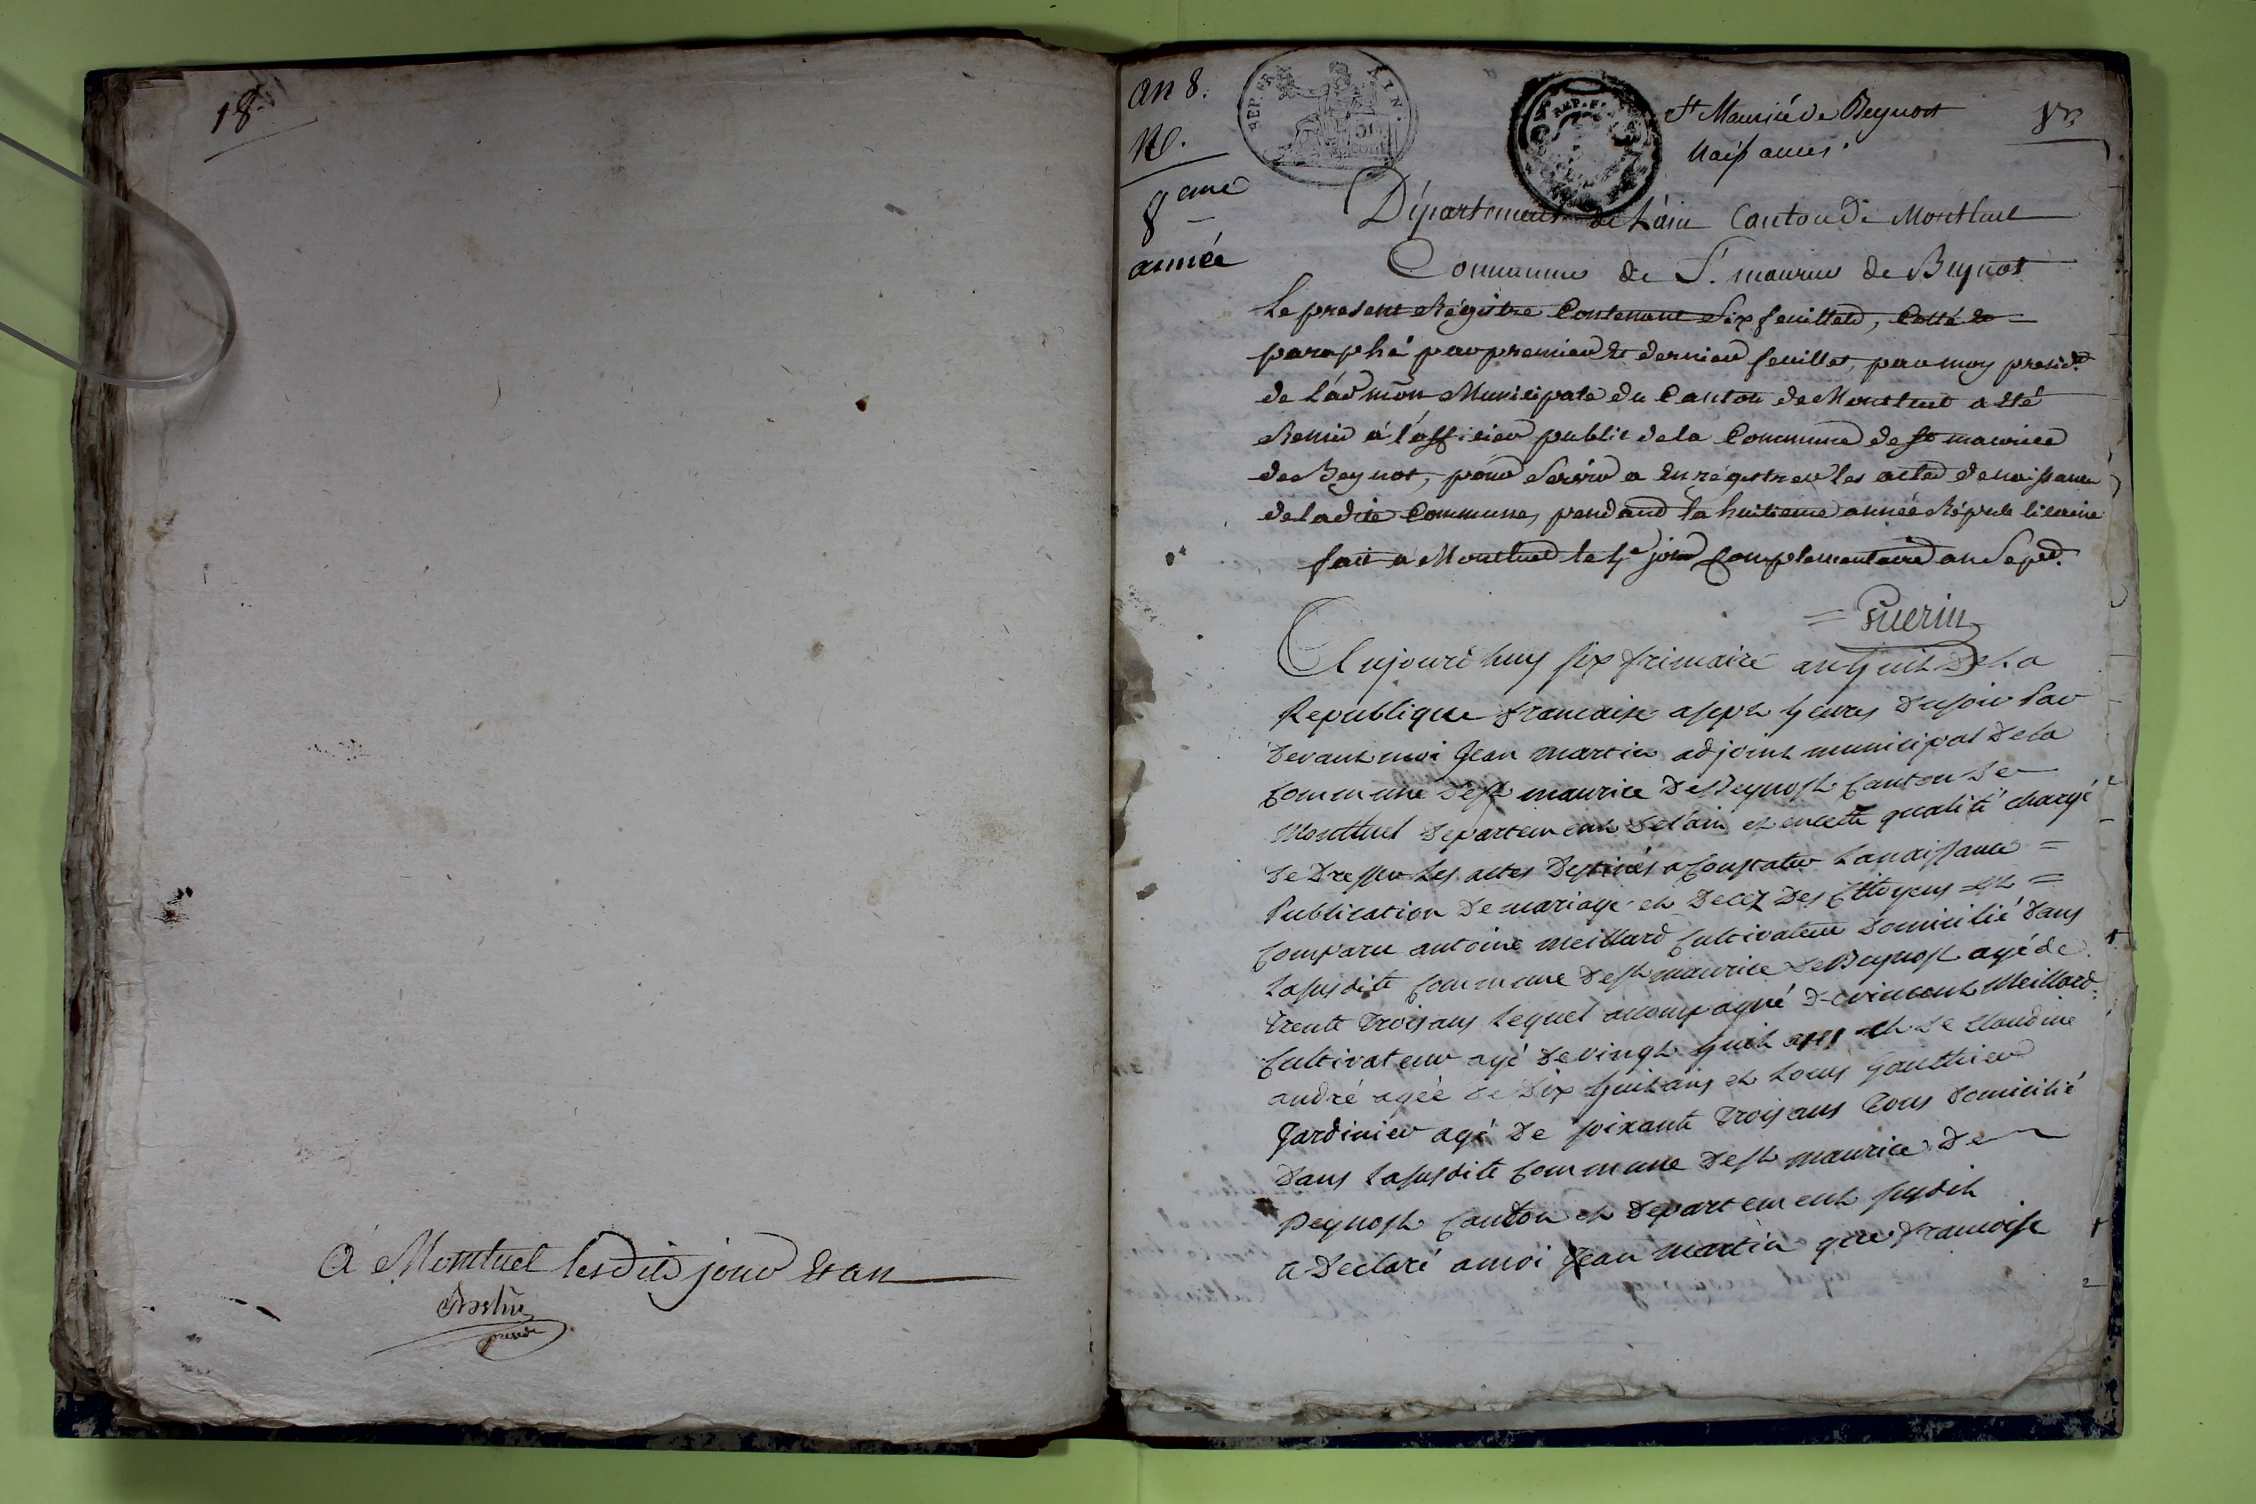 18.
A Montluel lesdits jour et an
an 8.
N.
8eme
année
REP. FR.
AIN.
REP. F.
St Maurice de Beynost
Naissances.
1er
Département de L'ain Canton de Montluel
Commune de St. maurice de Beynost
Le present Régistre Contenant Six feuillets, Cotté et
paraphé par premier et dernier feuillet, par moy presidt
de L'admon Municipale du Canton de Montluel a été
Remis à l'officier public de la Commune de St maurice
de Beynost, pour Servir a Enrégistrer les actes de naissance
de ladite Commune, pendant la huitieme année Républicaine
fait a Montluel le 4e jour Complementaire an Sept.
Guerin
Aujourd huy six frimaire an huit de La
Republique francaise a sept heures du soir Par
devant moi Jean martin adjoint municipal de la
Commune de st maurice de Beynost Canton de
Montluel departement de l'ain et en cette qualité chargé
de Dresser Les actes Destinés a Constater La naissance =
Publication de mariage et Decez Des Citoyens est =
Comparu antoine meillard Cultivateur Domicilié dans
La susdite Commune de st maurice de Beynost agé de
trente trois ans Lequel acompagné de vincent Meillard
Cultivateur agé de vingt huit ans et de Claudine
andré agée de Dix huit ans et Louis Gauthier
Jardinier agé de soixante trois ans tous domicilié
dans La susdite Commune de st maurice de
Beynost Canton et Departement susdit
a Declaré a moi Jean martin que francoise